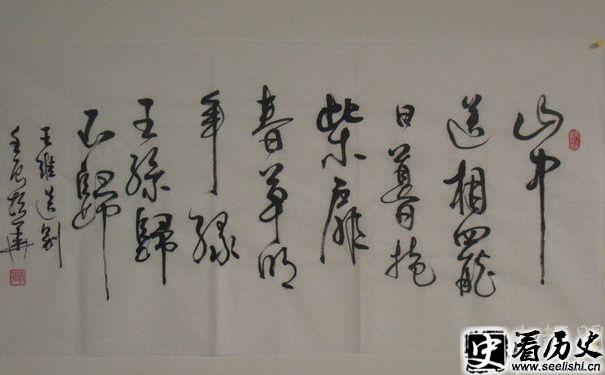 山中
送相罷
日暮掩
柴扉
春草明
年緑
王孫歸
不歸
王維送别
壬辰 華
史 看历史
www.seelishi.cn